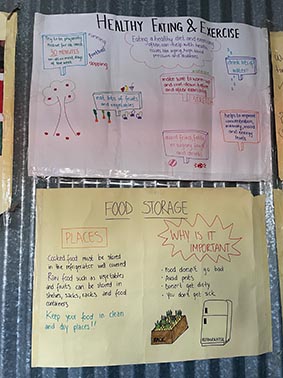 HEALTHY EATING & EXERCISE
Try to be physically
active for at least
30 MINUTES
running
football
skipping
Eating a healthy diet and exercising
often can help with health
issues like aging, high blood
pressure and diabetes.
drink lots of
water!
eat lots of fruits
and vegetables
make sure to warm-up
and cool down before
and after exercising
avoid fried, fatty
or sugary foods
and drinks
helps to improve
concentration,
memory, mood
and energy
levels
FOOD STORAGE
PLACES
Cooked food must be stored
in the refrigerator well covered
Raw food such as vegetables
and fruits can be stored in
shelves, sacks, racks and food
containers
Keep your food in clean
and dry places!!
WHY IS IT
IMPORTANT?
- Food doesn't go bad
- Avoid pests
- Doesn't get dirty
- You don't get sick
RACK
REFRIGERATOR